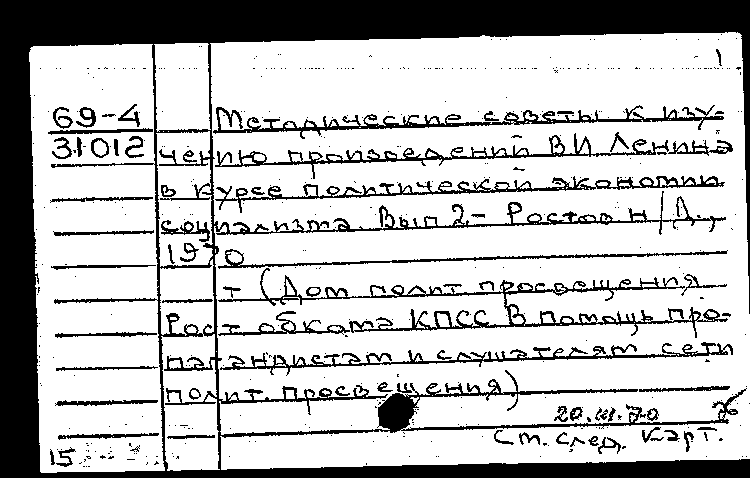 1
69-4 Методические советы к изу-
31012 чению произведений В И Ленина
в курсе политической экономии
социализма. Вып 2- Ростов н/Д.,
1970
т (Дом полит просвещения
Рост обкома КПСС В помощь про-
пагандистам и слушателям сети
полит. просвещения)
20.III.70
15 См. след. карт.